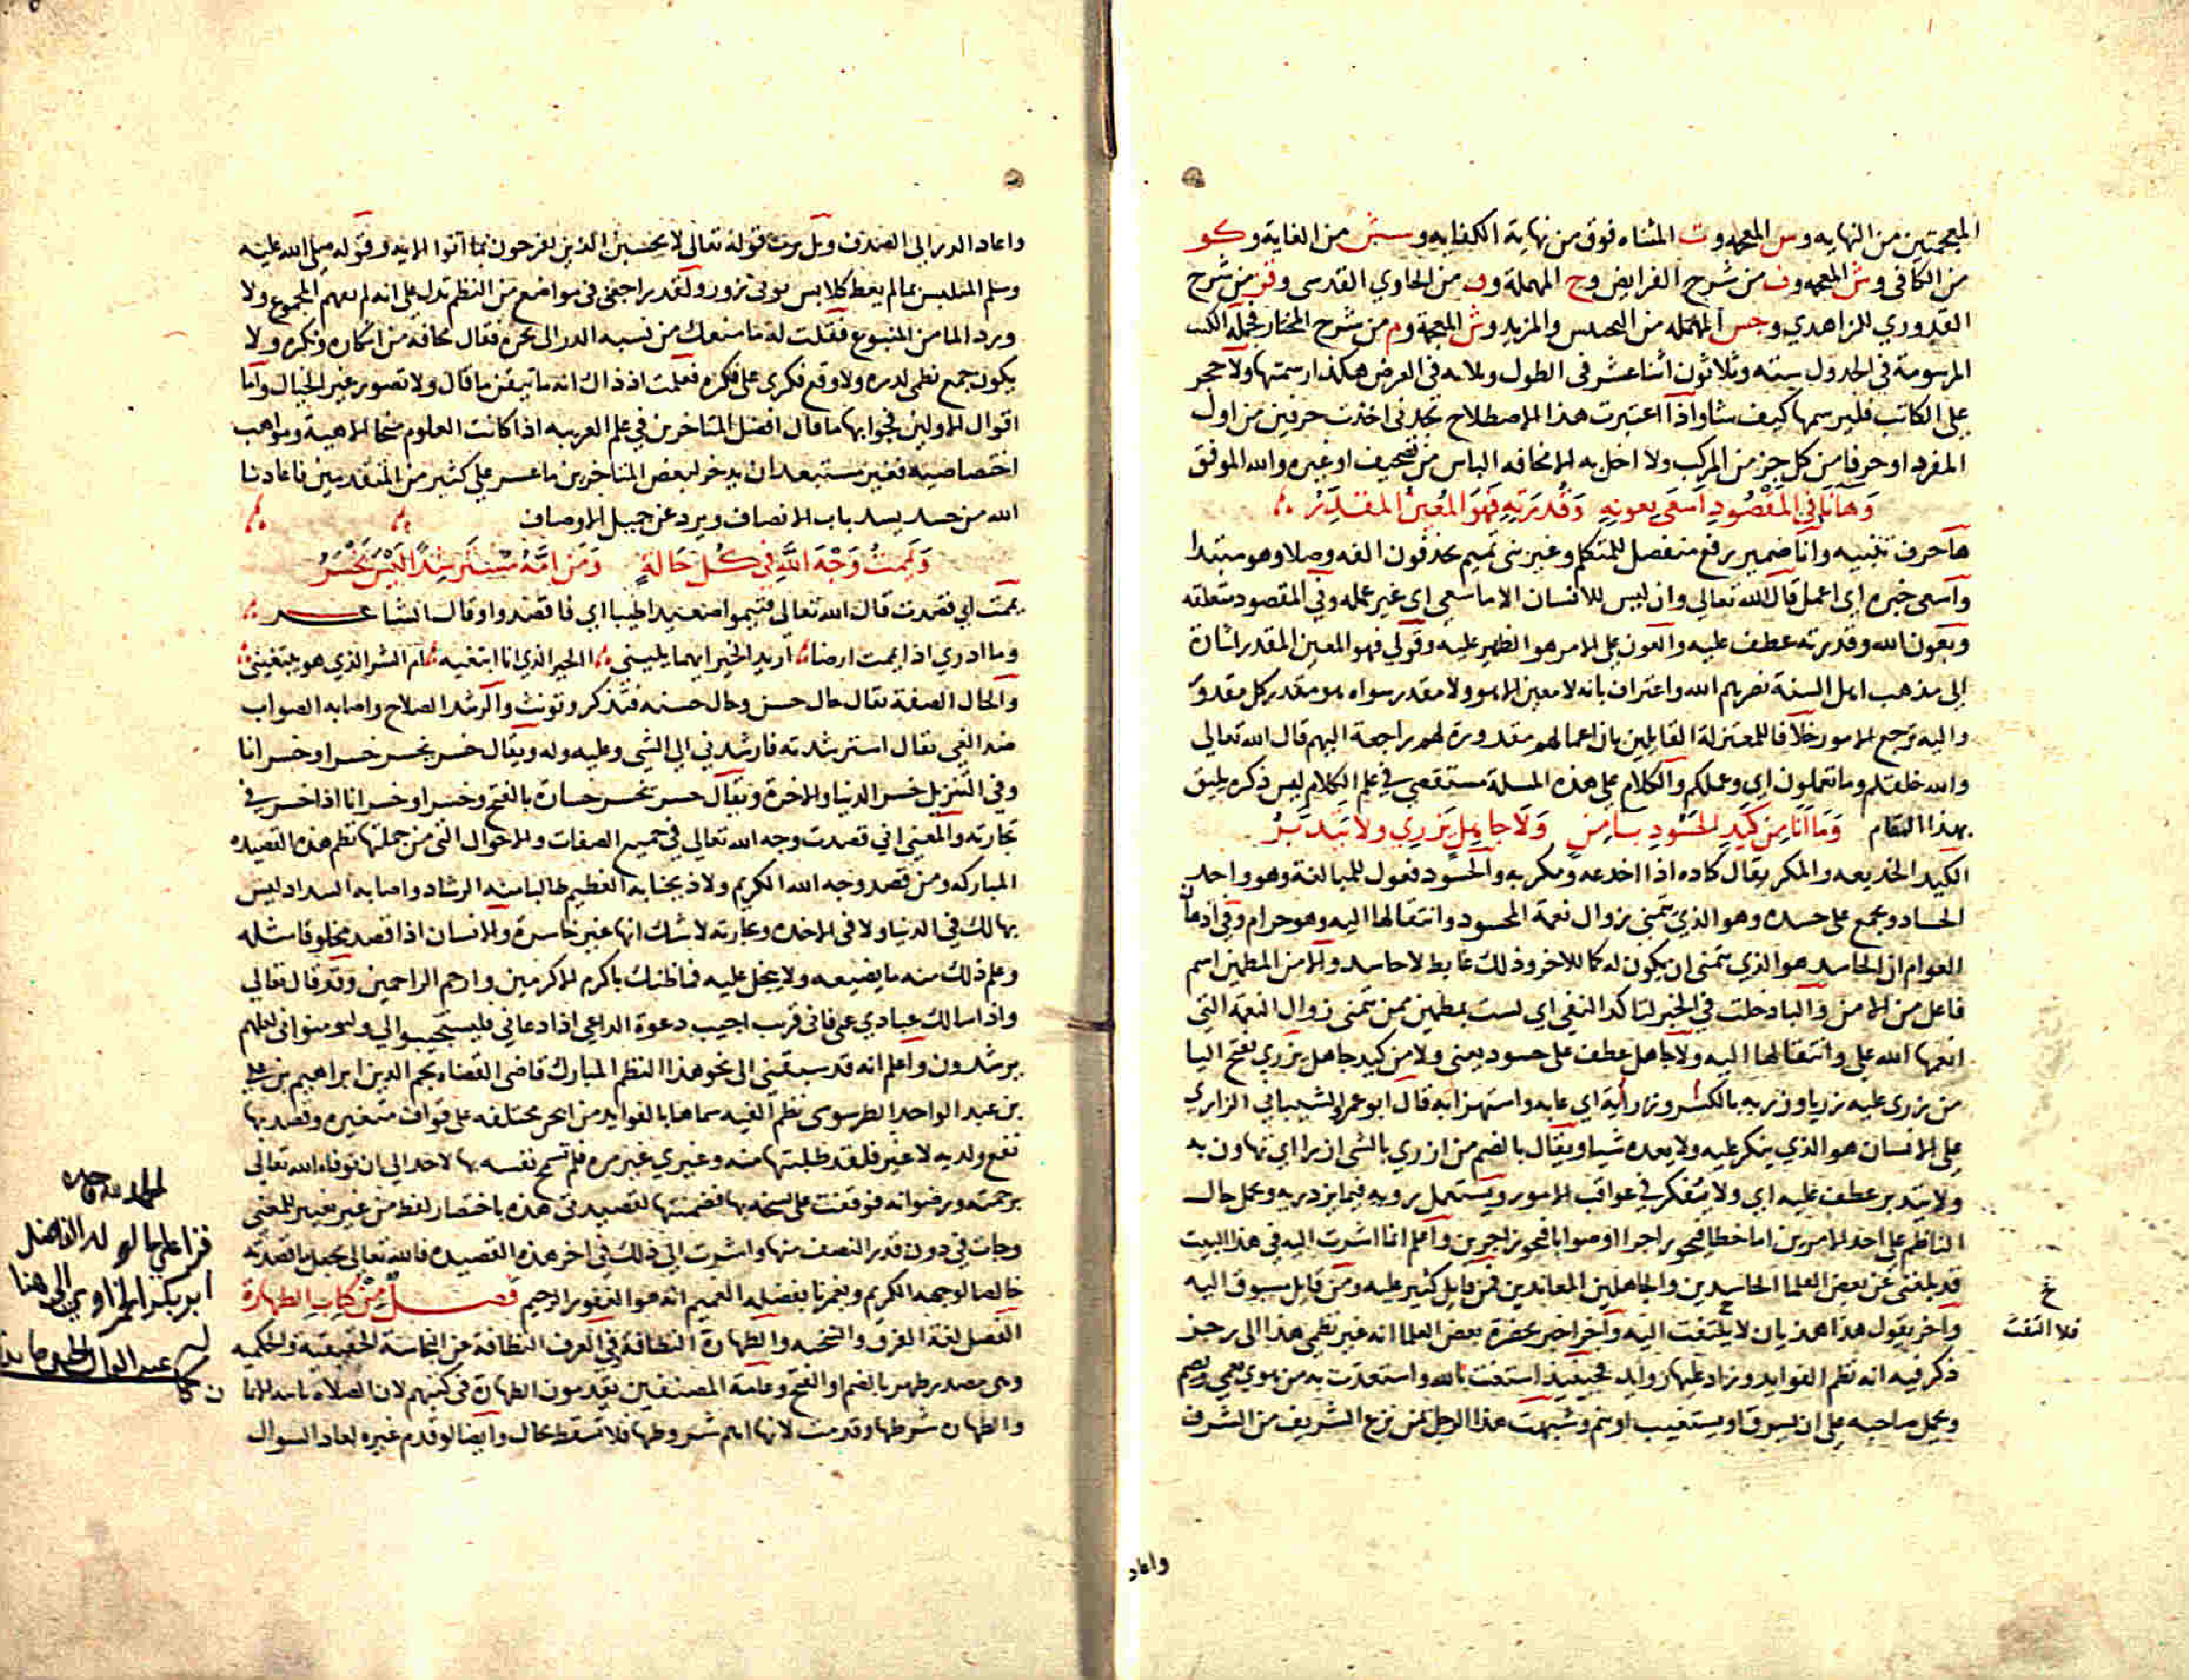 المعجمتين من النهايه وس المعجمه وت المثناه فوق من نهاية الكفايه وسش من الغايه وكو
من الكافى وش المعجمه وف من شرح الفرايض وح المهملة وق من الحاوي القدسى وقز من شرح
القدوري للزاهدي وجس المهمله من التجنيس والمزيد وش المعجمة وم من شرح المختار فجمله الكتب
المرسومة في الجدول سته وثلاثون اثنا عشر فى الطول وثلاثه فى العرض هكذا رسمتها ولا حجر
على الكاتب فليرسمها كيف شا واذا اعتبرت هذا الاصطلاح تجدنى اخذت حرفين من اول
المفرد او حرفا من كل جز من المركب ولا اخل به الا مخافه الباس من تصحيف او غيره والله الموفق
وَهَا أنَا فِي المَقْصُودِ أسْعَى بِعونِهِ وَقُدرَتِهِ فَهوَ المُعِينُ المقدِّرُ
ها حرف تنبيه وانا ضمير رفع منفصل للمتكلم وغير بنى تميم يحذفون الفه وصلا وهو مبتدا
واسعى خبره اى اعمل قال الله تعالى وان ليس للانسان الا ما سعى اى غير عمله وفي المقصود متعلقه
وبعون الله وقدرته عطف عليه والعون على الامر هو الظهير عليه وقولى فهو المعين المقدر اشارة
الى مذهب اهل السنة نصرهم الله واعتراف بانه لا معين الا هو ولا مقدر سواه هو مقدر كل مقدور
واليه ترجع الامور خلافا للمعتزلة القايلين بان اعمالهم مقدورة لهم راجعة اليهم قال الله تعالى
والله خلقكم وما تعملون اى وعملكم والكلام على هذه المسلة مستقصى في علم الكلام ليس ذكره يليق
بهذا المقام وَمَا أنَا مِن كَيدِ الحَسُودِ بِآمِنٍ وَلَا جاهِلٍ يَزرِي ولا يَتَدَبَّرُ
الكيد الخديعه والمكر يقال كاده اذا اخدعه ومكر به والحسود فعول للمبالغة وهو واحد
الحساد ويجمع على حسده وهو الذي يتمنى زوال نعمة المحسود وانتقالها اليه وهو حرام وفي اذهان
العوام ان الحاسد هو الذي يتمنى ان يكون له كما للاخر وذلك غابط لا حاسد والامن المطمين اسم
فاعل من الامن والبا دخلت في الخبر لتاكد النفى اى لست بمطمين ممن يتمنى زوال النعمه التى
انعمها الله على وانتقالها اليه ولا جاهل عطف على حسود يعنى ولا من كيد جاهل يزري بفتح اليا
من زرى عليه زريا وزريه بالكسر وزراية اى عابه واستهزا به قال ابو عمرو الشيبانى الزاري
على الانسان هو الذي ينكر عليه ولا يعده شيا ويقال بالضم من ازري بالشى ازرا اى تهاون به
ولا يتدبر عطف عليه اى ولا يتفكر في عواقب الامور ويستعمل رويه فيما يزدريه وعمل حال
الناظم على احد الامرين اما خطا فيحوز اجرا او صوابا فيحوز اجرين واعلم انما اشرت اليه في هذا البيت
قد بلغنى عن بعض العلما الحاسدين والجاهلين المعاندين فمن قايل كثير عليه ومن قايل سبوق اليه
واخر يقول هذا هذيان لا يلتفت اليه واخر اخبر بحضرة بعض العلما انه غير نظمى هذا الى رجز
ذكر فيه انه نظم الفوايد وزاد عليها زوايد فحينيذ استعنت بالله واستعذت به من هوي يعمى ويصم
ويحمل صاحبه على ان يسرق او يستغيب او ينم وشبهت هذا الرجل بمن نزع الشريف من الشرف
غ
فلا التفت
واعاد
واعاد الدر الى الصدف وتلوت قوله تعالى لا تحسبن الذين يفرحون بما اتوا الايه وقوله صلى الله عليه
وسلم المتلبس بما لم يعط كلابس ثوبى زور ولقد راجعنى فى مواضع من النظم تدل على انه لم يفهم المجموع ولا
ورد الما من الينبوع فقلت له ما منعك من نسبه الدر الى بحره فقال مخافه من انكاره ونكره ولا
يكون جمع نظمى لدره ولا وقع فكرى على فكره فعلمت اذ ذاك انه ما تيقن ما قال ولا تصور غير الخيال واما
اقوال الاولين فجوابها ما قال افضل المتاخرين في علم العربيه اذا كانت العلوم منحا الاهية ومواهب
اختصاصيه فغير مستبعد ان يدخر لبعض المتاخرين ما عسر على كثير من المتقدمين فاعاذنا
الله من حسد يسد باب الانصاف ويرد عن جميل الاوصاف
وَيَمَّمتُ وَجْهَ اللَّهِ فِي كُلِّ حَالَةٍ وَمَن أمَّهُ مُسْتَرْشِدًا لَيْسَ يَخْسَرُ
يممت اى قصدت قال الله تعالى فتيمموا صعيدا طيبا اى فاقصدوا وقال الشاعر
وما ادري اذا يممت ارضا اريد الخير ايهما يلينى االخير الذي انا ابتغيه ام الشر الذي هو يبتغينى
والحال الصفة يقال حال حسن وحال حسنه فتذكر وتونث والرشد الصلاح واصابه الصواب
ضد الغى يقال استرشدته فارشدنى الى الشى وعليه وله ويقال خسر يخسر خسرا وخسرانا
وفى التنزيل خسر الدنيا والاخرة ويقال خسر يخسر خسارة بالفتح وخسرا وخسرانا اذا خسر في
تجارته والمعنى انى قصدت وجه الله تعالى في جميع الصفات والاحوال التى من جملتها نظم هذه القصيده
المباركه ومن قصد وجه الله الكريم ولاذ بجنابه العظيم طالبا منه الرشاد واصابه السداد ليس
بهالك في الدنيا ولا فى الاخره وتجارته لا شك انها غير خاسرة والانسان اذا قصد مخلوقا مثله
وعلم ذلك منه ما يضيعه ولا يبخل عليه فما ظنك باكرم الاكرمين وارحم الراحمين وقد قال تعالى
واذا سالك عبادي عنى فانى قريب اجيب دعوة الداعى اذا دعانى فليستجيبوا لى وليومنوا بى لعلهم
يرشدون واعلم انه قد سبقنى الى نحو هذا النظم المبارك قاضى القضاه نجم الدين ابراهيم بن على
بن عبد الواحد الطرسوسى نظم الفيه سماها بالفوايد من ابحر مختلفه على قواف متغيره وقصد بها
نفع ولديه لا غير فلقد طلبتها منه وغيري غير مره فلم تسمح نفسه بها لاحد الى ان توفاه الله تعالى
برحمته ورضوانه فوقفت على نسخه بها فضمنتها لقصيدتى هذه باختصار لفظ من غير تغيير للمعنى
وجات فى دون قدر النصف منها واشرت الى ذلك في اخر هذه القصيده فالله تعالى يجعل ما قصدته
خالصا لوجهه الكريم ويغمرنا بفضله العميم انه هو الغفور الرحيم فصلٌ مِن كِتابِ الطهارة
الفصل لغة الفرق والتنحيه والطهارة النظافة في العرف النظافة عن النجاسة الحقيقية والحكميه
وهى مصدر طهر بالضم او الفتح وعامة المصنفين يقدمون الطهارة فى كتبهم لان الصلاة تاليه للايمان
والطهاره شرطها وقدمت لانها اهم شروطها فلا تسقط بحال وايضا لو قدم غيره لعاد السوال
الحمد لله وحده
قرا على الولد الفاضل
ابو بكر الحراوي الى هنا